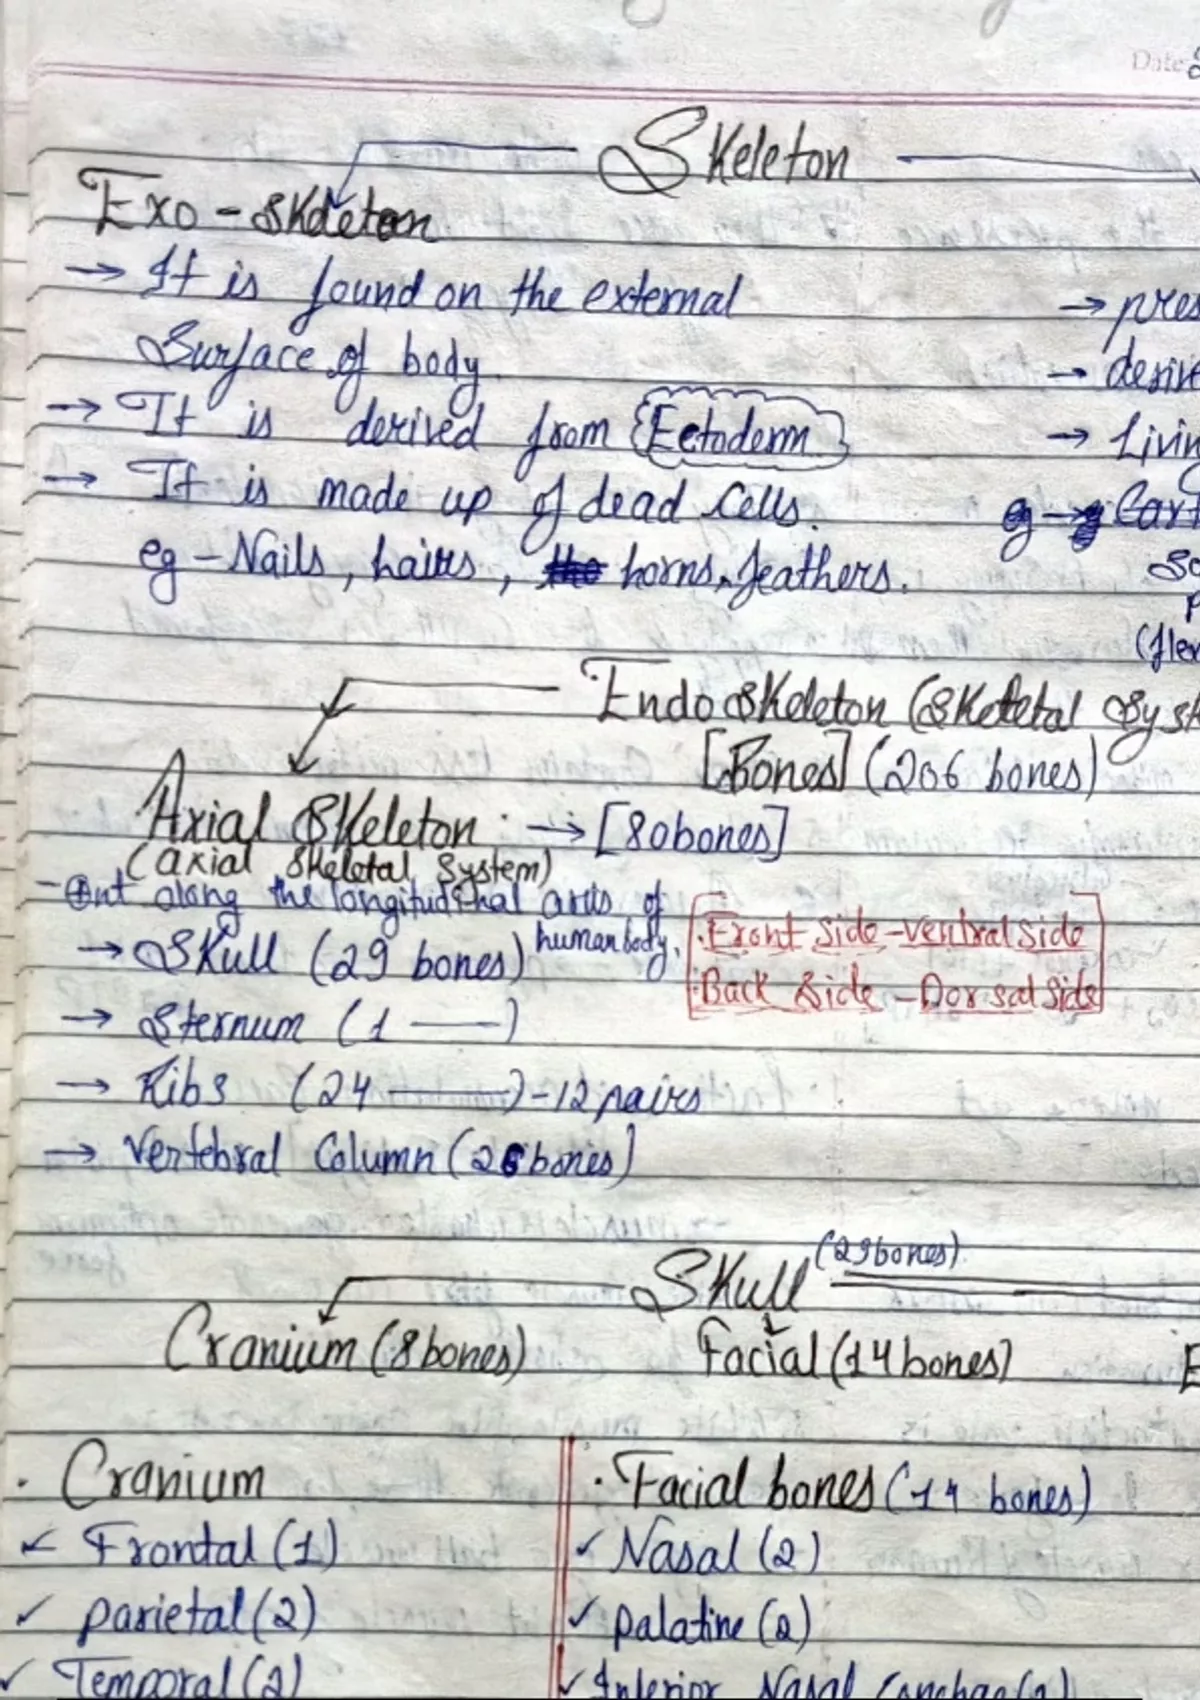 Date
Skeleton
Exo - Skeleton
→ It is found on the external
Surface of body.
→ It is derived from Ectoderm
→ It is made up of dead Cells.
eg - Nails, hairs, horns, feathers.
→ pres
→ derive
→ Living
eg → Cart
So
P
(flex
Endo Skeleton (Skeletal Syst
[Bones] (206 bones)
Axial Skeleton → [80bones]
(axial Skeletal System)
along the longitudinal axis of
human body.
→ Skull (29 bones)
→ Sternum (1 —)
→ Ribs (24 —) - 12 pairs
→ Vertebral Column (26 bones)
Front Side - Ventral Side
Back Side - Dorsal Side
Skull (29bones)
Cranium (8bones) Facial (14bones) E
• Cranium
✓ Frontal (1)
✓ Parietal (2)
✓ Temporal (2)
• Facial bones (14 bones)
✓ Nasal (2)
✓ Palatine (2)
✓ Inferior Nasal Conchae (2)